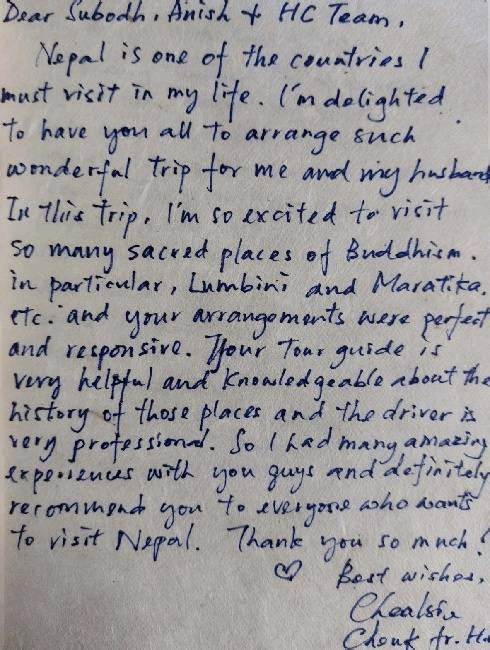 Dear Subodh, Anish & HC Team,
Nepal is one of the countries I
must visit in my life. I'm delighted
to have you all to arrange such
wonderful trip for me and my husband
In this trip, I'm so excited to visit
so many sacred places of Buddhism.
in particular, Lumbini and Maratika,
etc. and your arrangements were perfect
and responsive. Your Tour guide is
very helpful and knowledgeable about the
history of those places and the driver is
very professional. So I had many amazing
experiences with you guys and definitely
recommend you to everyone who wants
to visit Nepal. Thank you so much!
♡ Best wishes,
fr.